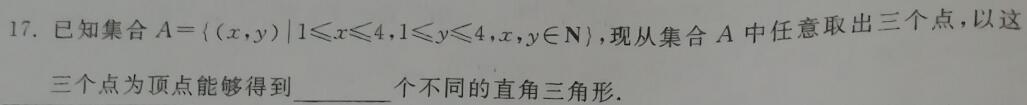 17. 已知集合 A={(x,y)|1≤x≤4,1≤y≤4,x,y∈N},现从集合 A 中任意取出三个点,以这
三个点为顶点能够得到________个不同的直角三角形.